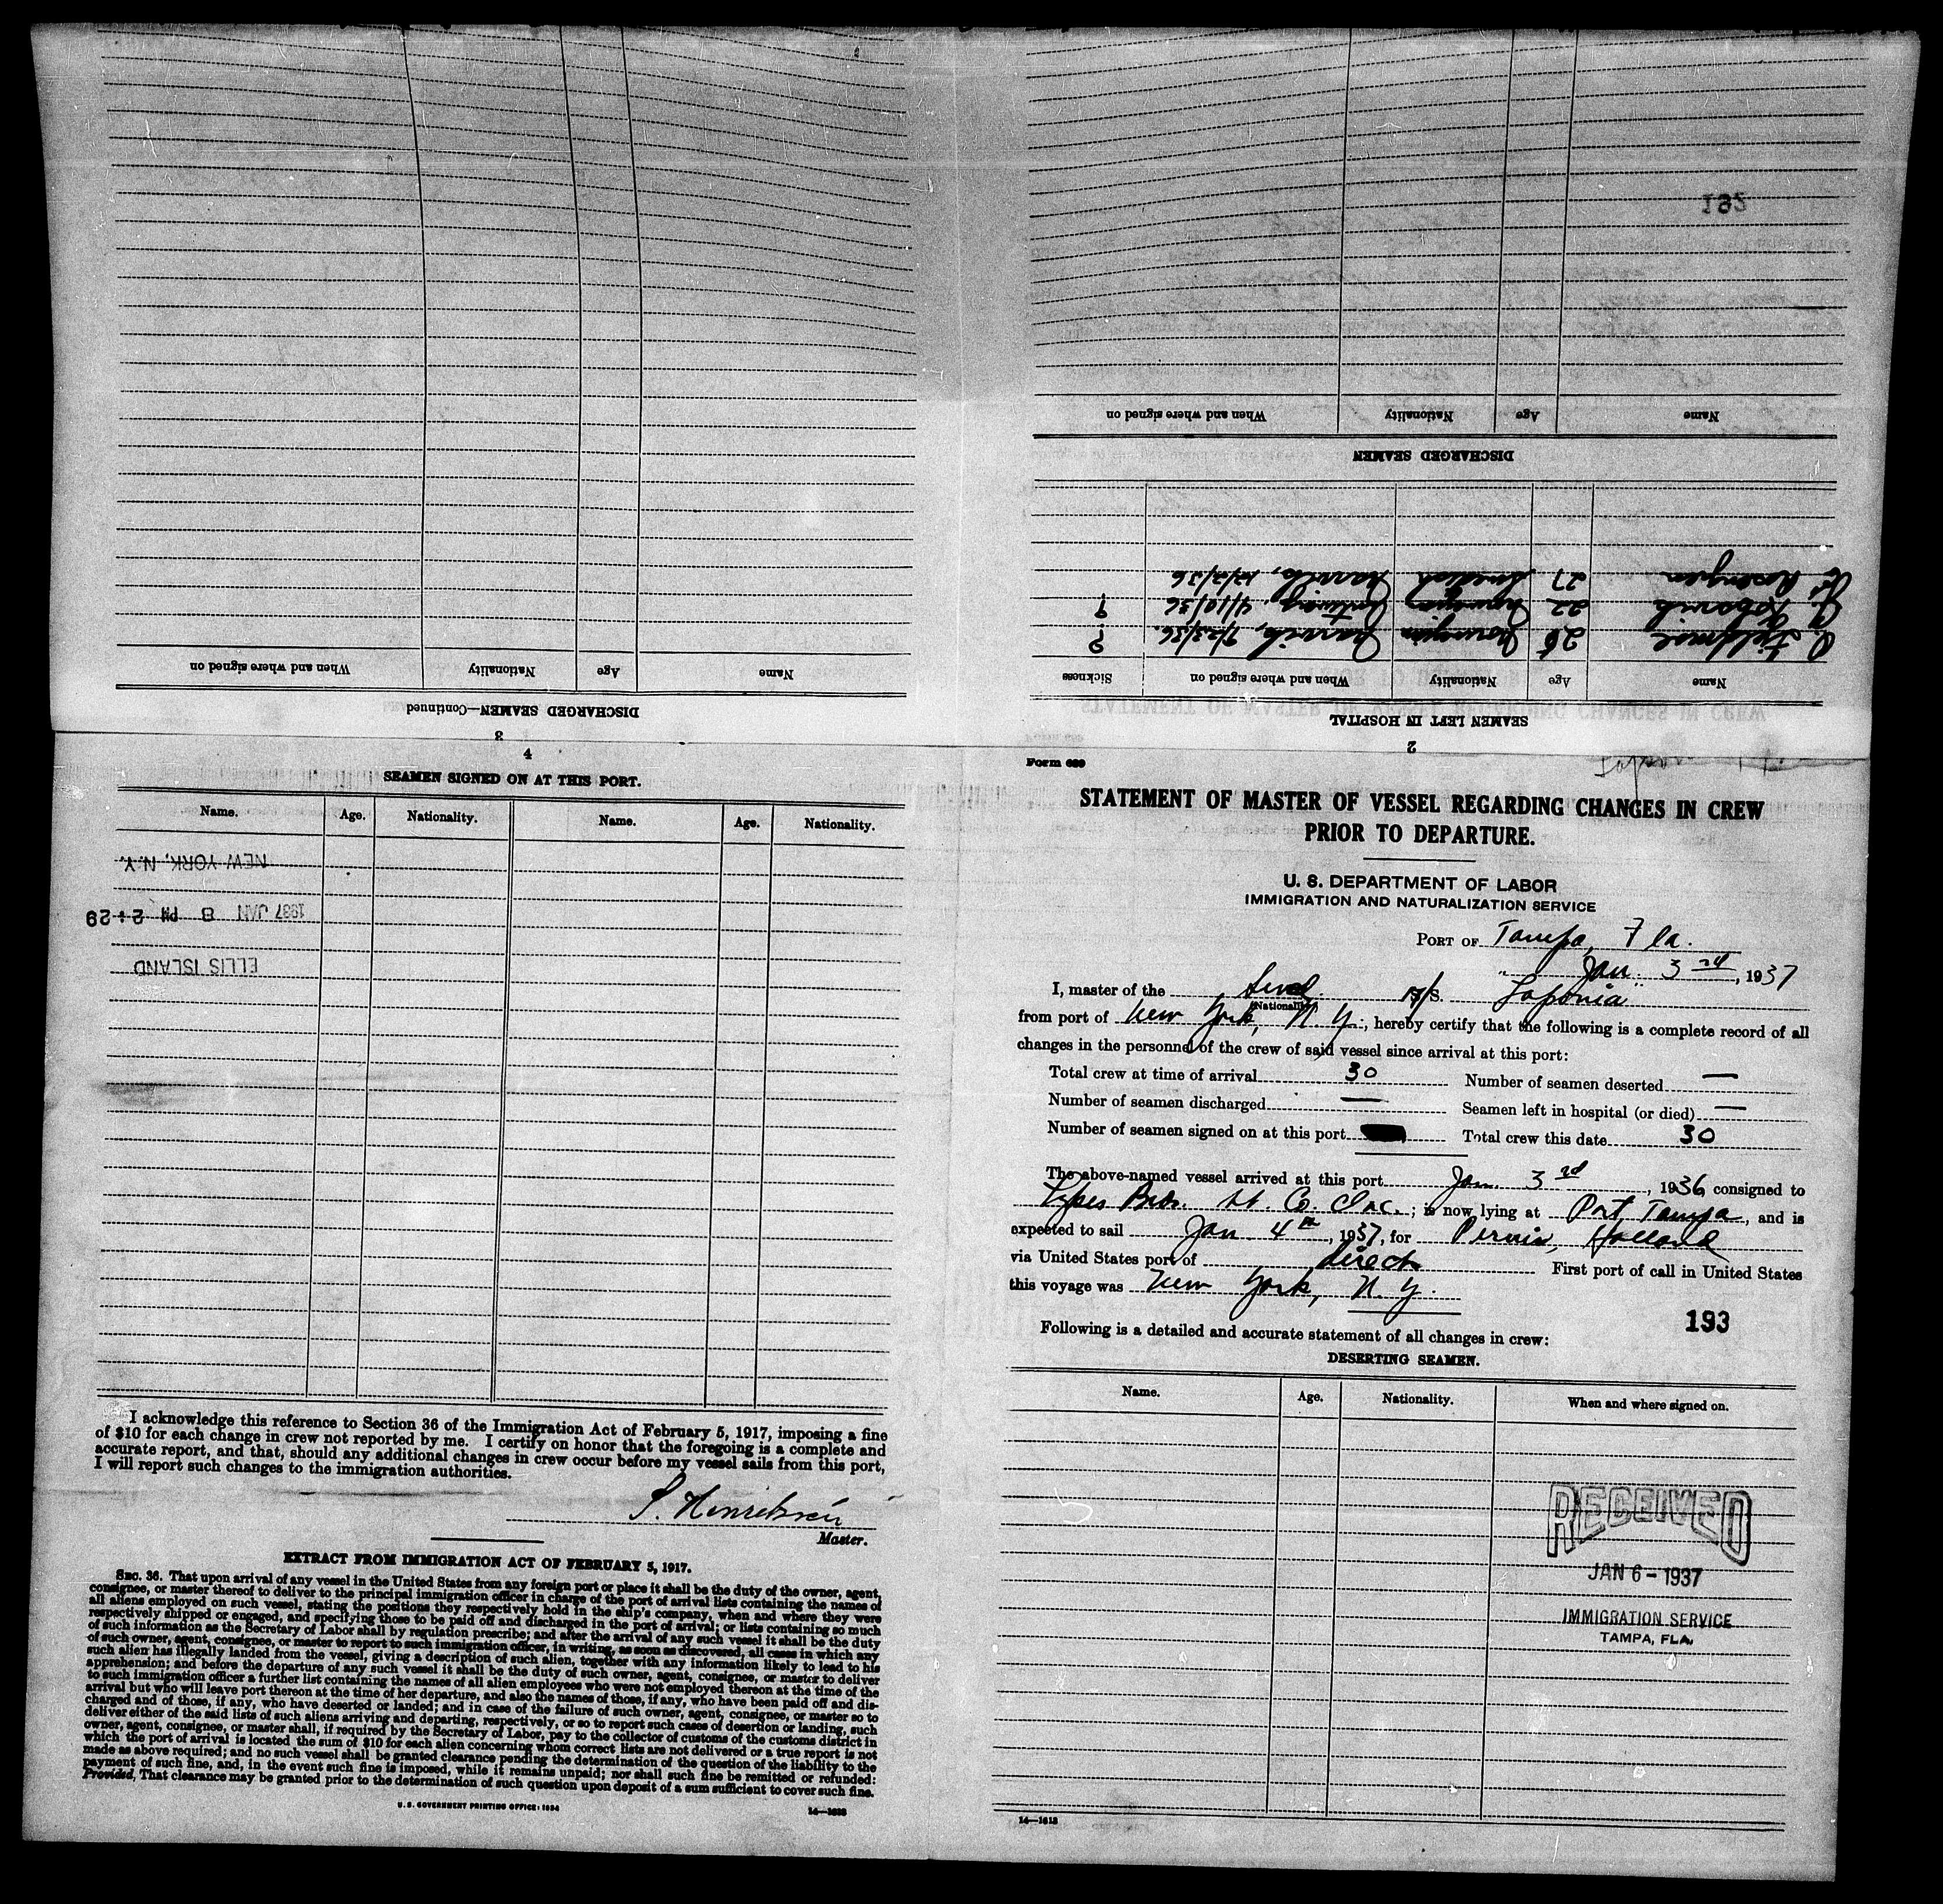 Form 689
STATEMENT OF MASTER OF VESSEL REGARDING CHANGES IN CREW
PRIOR TO DEPARTURE.
U. S. DEPARTMENT OF LABOR
IMMIGRATION AND NATURALIZATION SERVICE
PORT OF Tampa, Fla.
Jan. 3rd, 1937
I, master of the Swed. M/S. "Laponia"
(Nationality)
from port of New York, N.Y., hereby certify that the following is a complete record of all
changes in the personnel of the crew of said vessel since arrival at this port:
Total crew at time of arrival 30 Number of seamen deserted —
Number of seamen discharged — Seamen left in hospital (or died) —
Number of seamen signed on at this port Total crew this date 30
The above-named vessel arrived at this port Jan. 3rd, 1936, consigned to
Lykes Bros. SS. Co. Inc.; is now lying at Port Tampa, and is
expected to sail Jan 4th, 1937, for Pernis, Holland
via United States port of direct First port of call in United States
this voyage was New York, N.Y.
193
Following is a detailed and accurate statement of all changes in crew:
DESERTING SEAMEN.
Name. Age. Nationality. When and where signed on.
RECEIVED
JAN 6 - 1937
IMMIGRATION SERVICE
TAMPA, FLA.
14—1613
2
SEAMEN LEFT IN HOSPITAL
Name Age Nationality When and where signed on Sickness
26 Norwegian Narvik, 7/23/36. ?
22 Norwegian 4/10/36 ?
27 Swedish Narvik, 12/2/36
DISCHARGED SEAMEN
Name Age Nationality When and where signed on
192
3
DISCHARGED SEAMEN—Continued
Name Age Nationality When and where signed on
4
SEAMEN SIGNED ON AT THIS PORT.
Name. Age. Nationality. Name. Age. Nationality.
ELLIS ISLAND
1937 JAN 8 PM 2:29
NEW YORK, N.Y.
I acknowledge this reference to Section 36 of the Immigration Act of February 5, 1917, imposing a fine
of $10 for each change in crew not reported by me. I certify on honor that the foregoing is a complete and
accurate report, and that, should any additional changes in crew occur before my vessel sails from this port,
I will report such changes to the immigration authorities.
S. Henriksén
Master.
EXTRACT FROM IMMIGRATION ACT OF FEBRUARY 5, 1917.
SEC. 36. That upon arrival of any vessel in the United States from any foreign port or place it shall be the duty of the owner, agent,
consignee, or master thereof to deliver to the principal immigration officer in charge of the port of arrival lists containing the names of
all aliens employed on such vessel, stating the positions they respectively hold in the ship's company, when and where they were
respectively shipped or engaged, and specifying those to be paid off and discharged in the port of arrival; or lists containing so much
of such information as the Secretary of Labor shall by regulation prescribe; and after the arrival of any such vessel it shall be the duty
of such owner, agent, consignee, or master to report to such immigration officer, in writing, as soon as discovered, all cases in which any
such alien has illegally landed from the vessel, giving a description of such alien, together with any information likely to lead to his
apprehension; and before the departure of any such vessel it shall be the duty of such owner, agent, consignee, or master to deliver
to such immigration officer a further list containing the names of all alien employees who were not employed thereon at the time of the
arrival but who will leave port thereon at the time of her departure, and also the names of those, if any, who have been paid off and dis-
charged and of those, if any, who have deserted or landed; and in case of the failure of such owner, agent, consignee, or master so to
deliver either of the said lists of such aliens arriving and departing, respectively, or so to report such cases of desertion or landing, such
owner, agent, consignee, or master shall, if required by the Secretary of Labor, pay to the collector of customs of the customs district in
which the port of arrival is located the sum of $10 for each alien concerning whom correct lists are not delivered or a true report is not
made as above required; and no such vessel shall be granted clearance pending the determination of the question of the liability to the
payment of such fine, and, in the event such fine is imposed, while it remains unpaid; nor shall such fine be remitted or refunded:
Provided, That clearance may be granted prior to the determination of such question upon deposit of a sum sufficient to cover such fine.
U. S. GOVERNMENT PRINTING OFFICE: 1934
14—1613